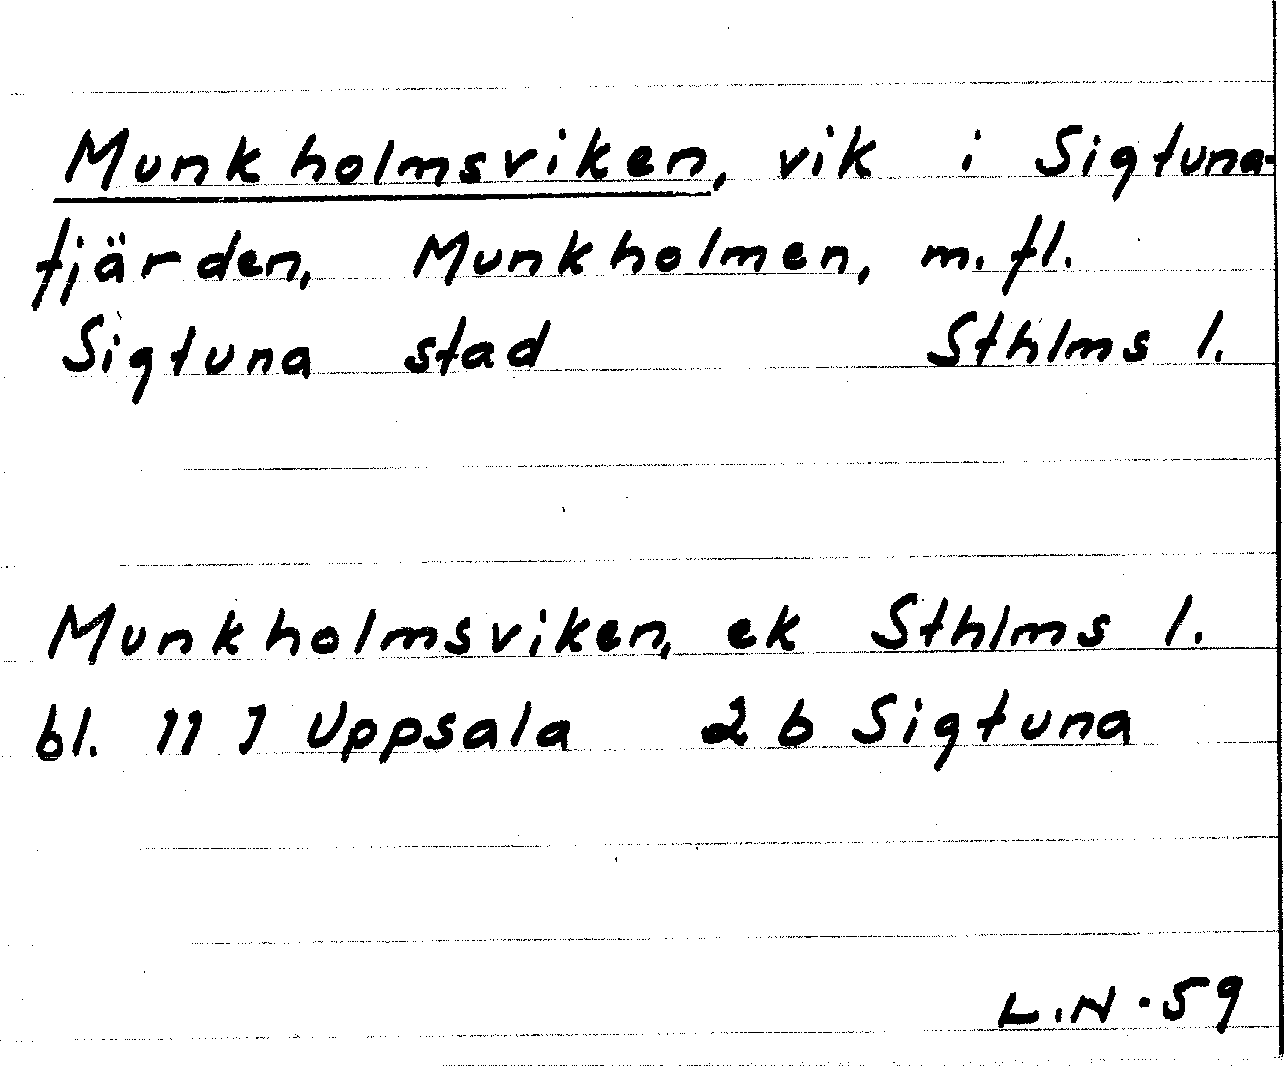 Munkholmsviken, vik i Sigtuna-
fjärden, Munkholmen, m.fl.
Sigtuna stad Sthlms l.
Munkholmsviken, ek Sthlms l.
bl. 11 I Uppsala 2 b Sigtuna
L.N. 59